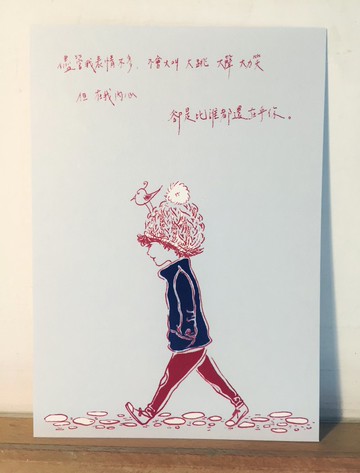 儘管我表情不多，不會大叫 大跳 大聲 大笑
但 在我內心
卻是比誰都還在乎你。